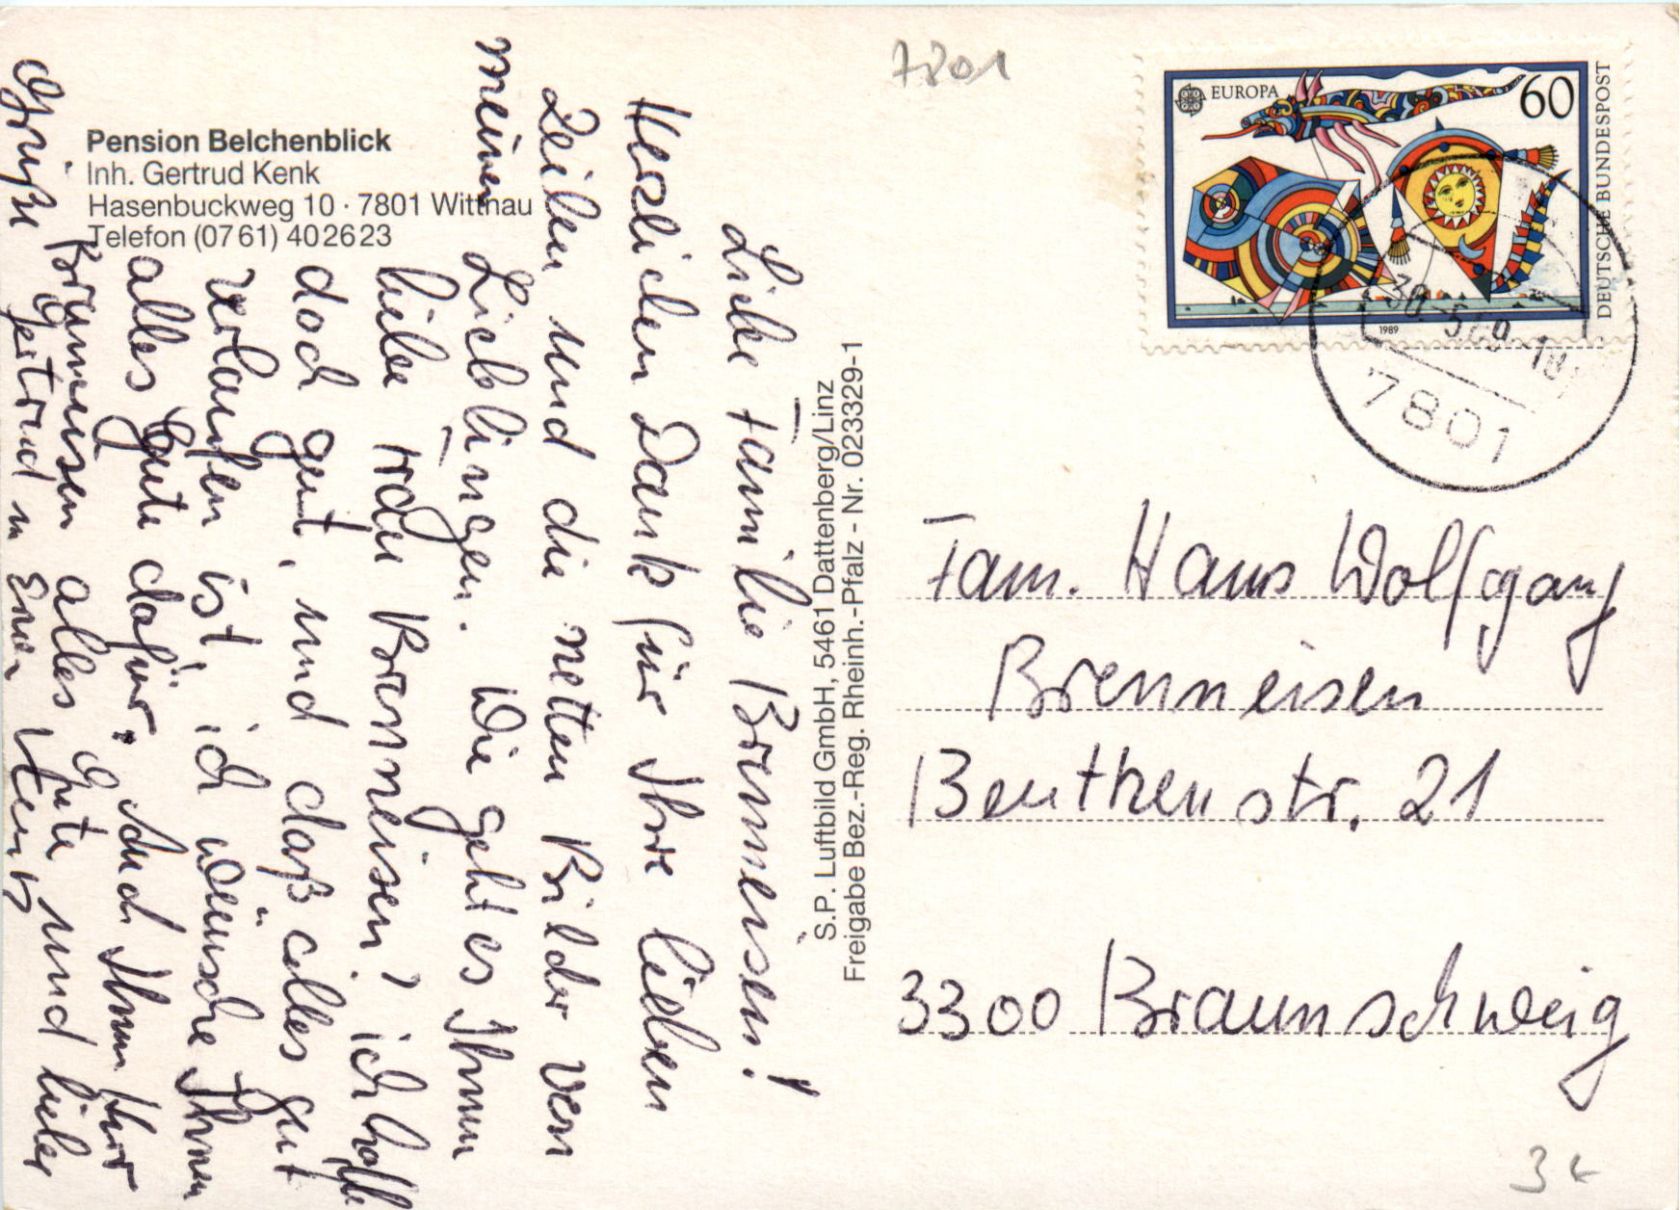 7801
EUROPA
60
DEUTSCHE BUNDESPOST
1989
30. 5. 89 - 18
7801
Pension Belchenblick
Inh. Gertrud Kenk
Hasenbuckweg 10 · 7801 Wittnau
Telefon (07 61) 40 26 23
Liebe Familie Brenneisen!
Herzlichen Dank für Ihre lieben
Zeilen und die netten Bilder von
meinen Lieblingen. Wie geht es Ihnen
liebe Frau Brenneisen? ich hoffe
doch gut, und daß alles gut
verlaufen ist, ich wünsche Ihnen
alles Gute dafür. Auch Ihnen Herr
Brenneisen alles Gute und liebe
Grüße Gertrud
S.P. Luftbild GmbH, 5461 Dattenberg/Linz
Freigabe Bez.-Reg. Rheinh.-Pfalz - Nr. 023329-1
Fam. Hans Wolfgang
Brenneisen
Beuthenstr. 21
3300 Braunschweig